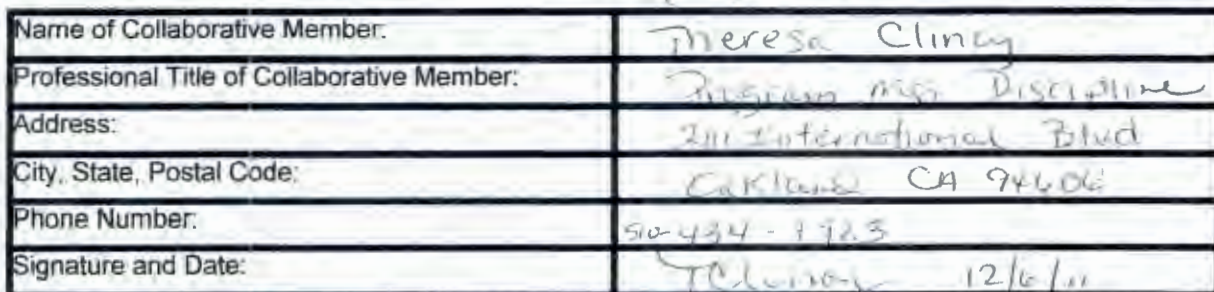 Name of Collaborative Member: Theresa Clincy
Professional Title of Collaborative Member: Program Mgr Discipline
Address: 2111 International Blvd
City, State, Postal Code: Oakland CA 94606
Phone Number: 510-434-
Signature and Date: TClincy 12/6/11